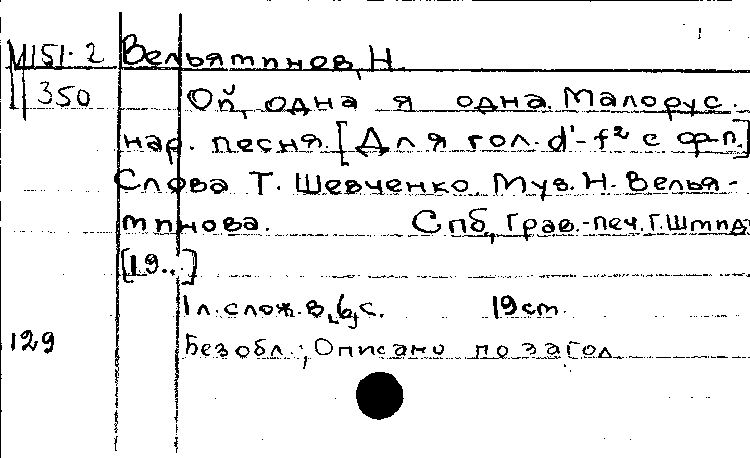 М151-2 Вельяминов, Н.
350 Ой, одна я одна. Малорус.
нар. песня. [Для гол. d'-f² с ф-п.]
Слова Т. Шевченко. Муз. Н. Велья-
минова. Спб, Грав.-печ. Г. Шмид
[19..]
1 л. слож. в 6 с. 19 cm.
129 Без обл.; Описано по загол